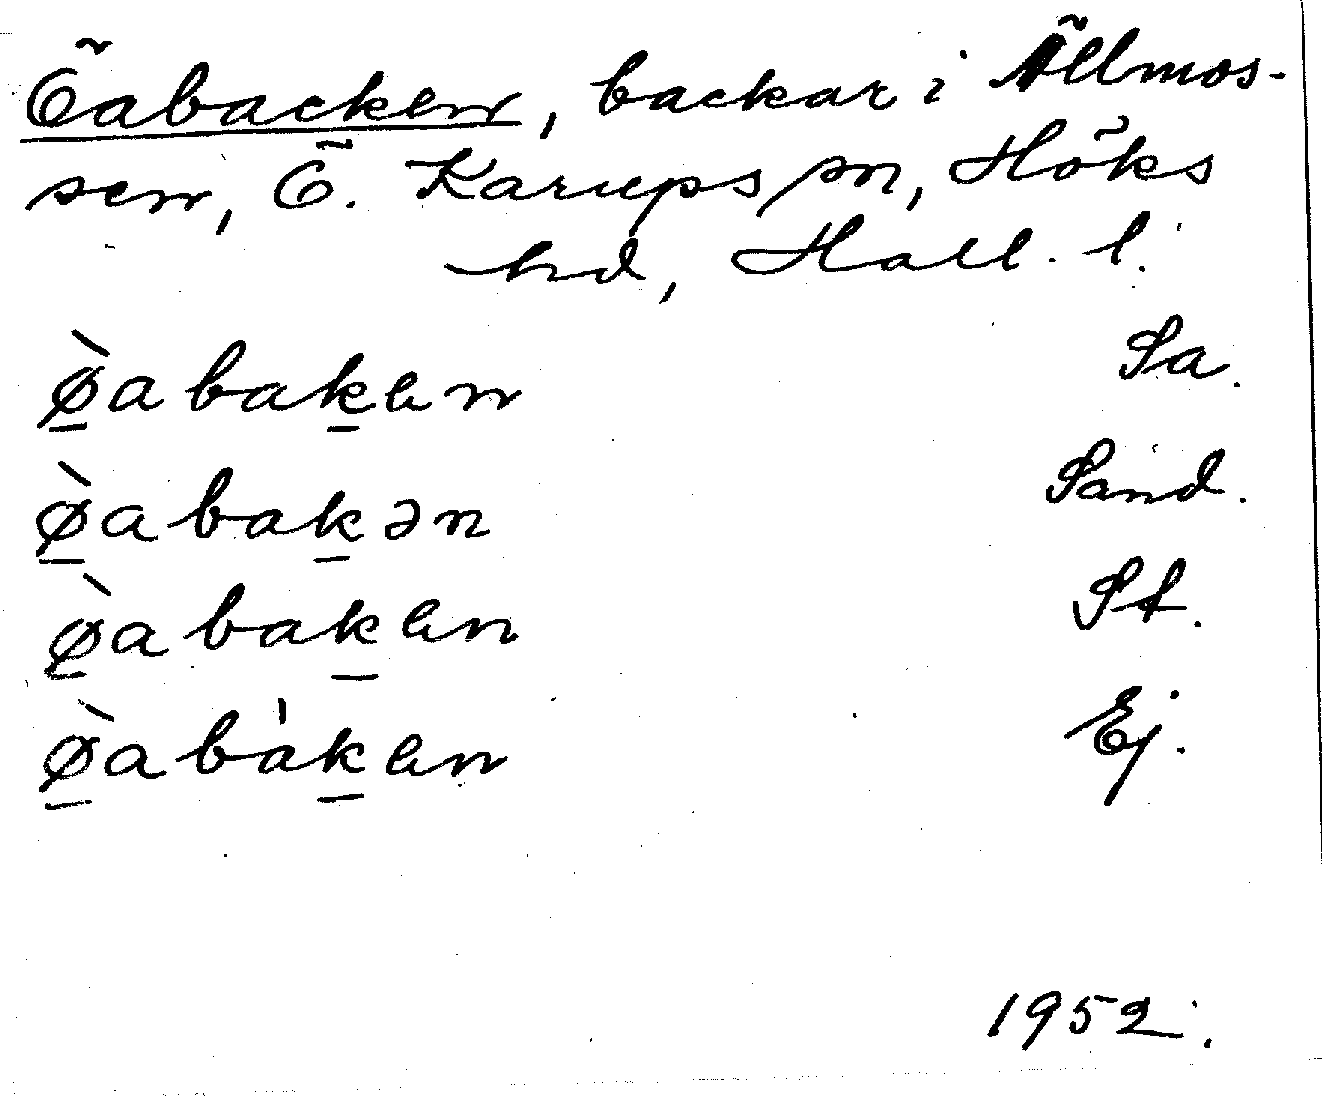 Öabacken, backar i Ällmos-
sen, Ö. Karups sn, Höks
hd, Hall. l.
ø̀abaken Sa.
ø̀abakən Sand.
ø̀abaken St.
ø̀aba̍ken Ej.
1952.